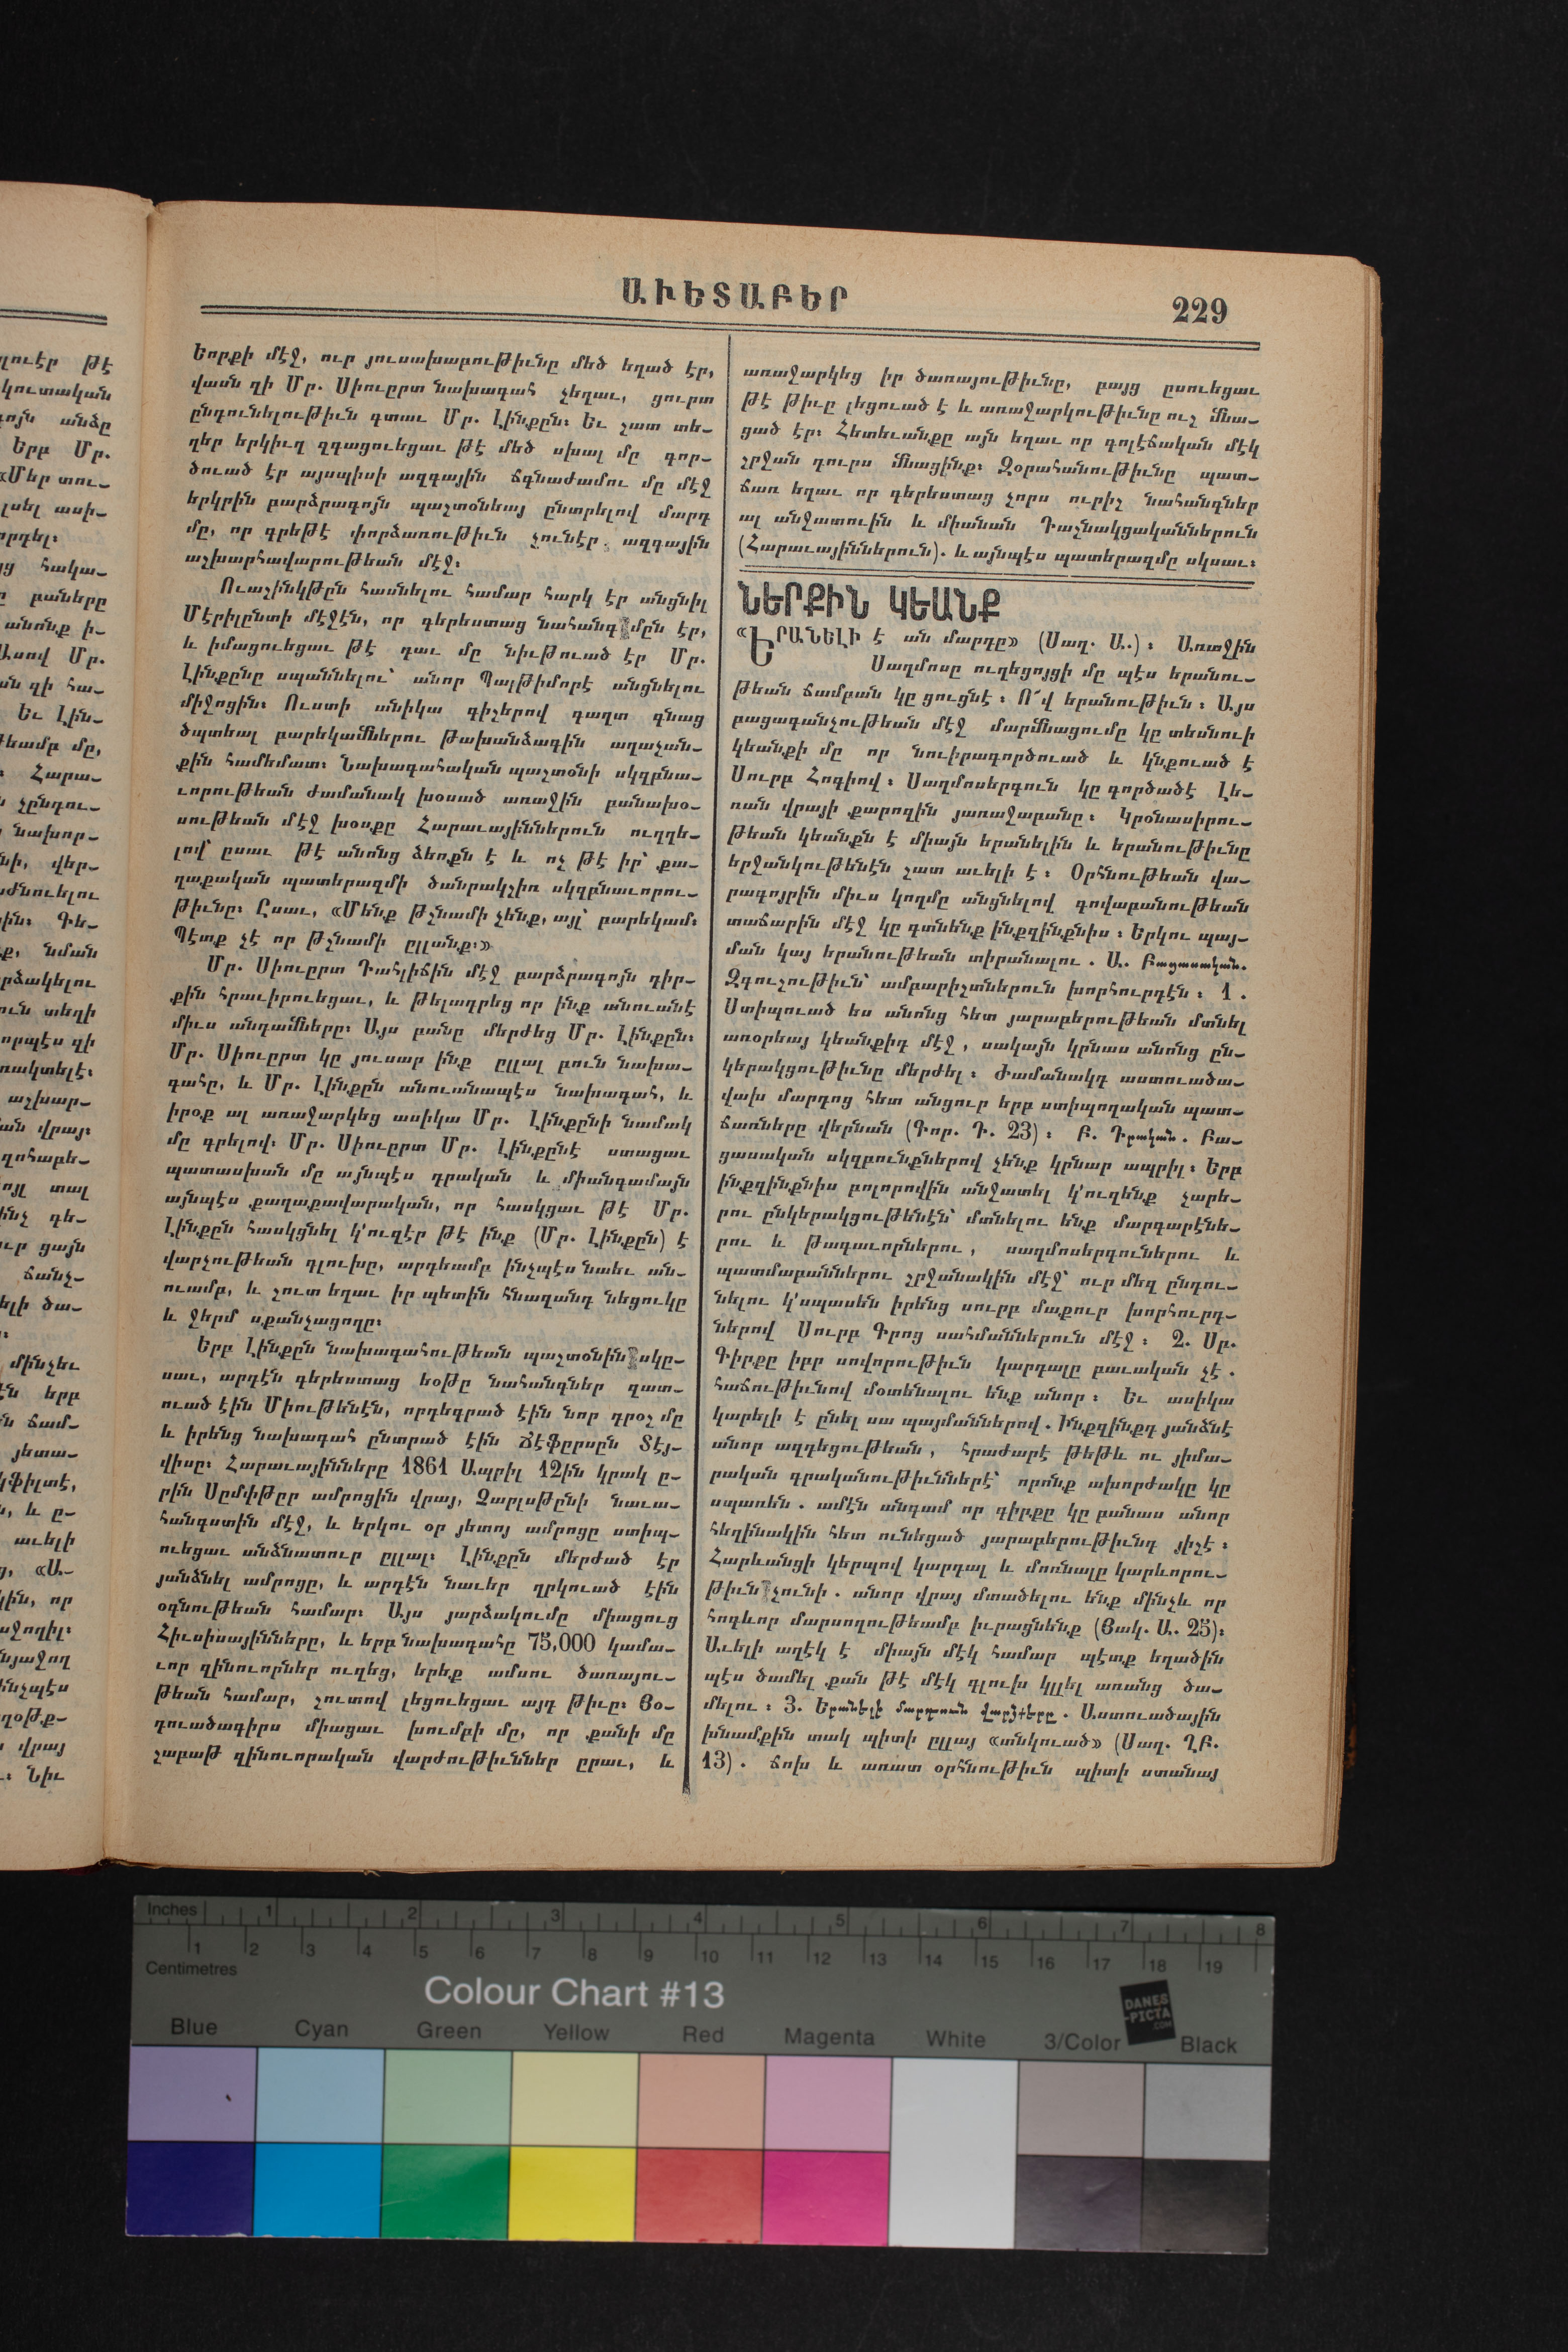 ԱՒԵՏԱԲԵՐ
229
Եորքի մէջ, ուր յուսախաբութիւնը մեծ եղած էր,
վասն զի Մր. Սիուըրտ նախագահ չեղաւ, ցուրտ
ընդունելութիւն գտաւ Մր. Լինքըն։ Եւ շատ տե-
ղեր երկիւղ զգացուեցաւ թէ մեծ սխալ մը գոր-
ծուած էր այսպիսի ազգային ճգնաժամու մը մէջ
երկրին բարձրագոյն պաշտօնեայ ընտրելով մարդ
մը, որ գրեթէ փորձառութիւն չունէր ազգային
աշխարհավարութեան մէջ։
Ուաշինկթըն հասնելու համար հարկ էր անցնիլ
Մէրիլընտի մէջէն, որ գերեստաց նահանգ մըն էր,
և իմացուեցաւ թէ դաւ մը նիւթուած էր Մր.
Լինքընը սպաննելու՝ անոր Պալթիմորէ անցնելու
միջոցին։ Ուստի անիկա գիշերով գաղտ գնաց
ծպտեալ բարեկամներու թախանձագին աղաչան-
քին համեմատ։ Նախագահական պաշտօնի սկզբնա-
ւորութեան ժամանակ խօսած առաջին բանախօ-
սութեան մէջ խօսքը Հարաւայիններուն ուղղե-
լով՝ ըսաւ թէ անոնց ձեռքն է և ոչ թէ իր՝ քա-
ղաքական պատերազմի ծանրակշիռ սկզբնաւորու-
թիւնը։ Ըսաւ, «Մենք թշնամի չենք, այլ՝ բարեկամ։
Պէտք չէ որ թշնամի ըլլանք։»
Մր. Սիուըրտ Դահլիճին մէջ բարձրագոյն դիր-
քին հրաւիրուեցաւ, և թելադրեց որ ինք անուանէ
միւս անդամները։ Այս բանը մերժեց Մր. Լինքըն։
Մր. Սիուըրտ կը յուսար ինք ըլլալ բուն նախա-
գահը, և Մր. Լինքըն անուանապէս նախագահ, և
իրօք ալ առաջարկեց ասիկա Մր. Լինքընի նամակ
մը գրելով։ Մր. Սիուըրտ Մր. Լինքընէ ստացաւ
պատասխան մը այնպէս դրական և միանգամայն
այնպէս քաղաքավարական, որ հասկցաւ թէ Մր.
Լինքըն հասկցնել կ՚ուզէր թէ ինք (Մր. Լինքըն) է
վարչութեան գլուխը, արդեամբ ինչպէս նաեւ ան-
ուամբ, և շուտ եղաւ իր պետին հնազանդ նեցուկը
և ջերմ սքանչացողը։
Երբ Լինքըն նախագահութեան պաշտօնին սկը-
սաւ, արդէն գերեստաց եօթը նահանգներ զատ-
ուած էին Միութենէն, որդեգրած էին նոր դրօշ մը
և իրենց նախագահ ընտրած էին Ճէֆըրսըն Տէյ-
վիսը։ Հարաւայինները 1861 Ապրիլ 12ին կրակ ը-
րին Սըմփթըր ամրոցին վրայ, Չարլսթընի նաւա-
հանգստին մէջ, և երկու օր յետոյ ամրոցը ստիպ-
ուեցաւ անձնատուր ըլլալ։ Լինքըն մերժած էր
յանձնել ամրոցը, և արդէն նաւեր ղրկուած էին
օգնութեան համար։ Այս յարձակումը միացուց
Հիւսիսայինները, և երբ նախագահը 75,000 կամա-
ւոր զինուորներ ուզեց, երեք ամսու ծառայու-
թեան համար, շուտով լեցուեցաւ այդ թիւը։ Յօ-
դուածագիրս միացաւ խումբի մը, որ քանի մը
շաբաթ զինուորական վարժութիւններ ըրաւ, և
առաջարկեց իր ծառայութիւնը, բայց ըսուեցաւ
թէ թիւը լեցուած է և առաջարկութիւնը ուշ մնա-
ցած էր։ Հետեւանքը այն եղաւ որ գոլէճական մէկ
շրջան դուրս մնացինք։ Զօրահանութիւնը պատ-
ճառ եղաւ որ գերեստաց չորս ուրիշ նահանգներ
ալ անջատուին և միանան Դաշնակցականներուն
(Հարաւայիններուն). և այնպէս պատերազմը սկսաւ։
ՆԵՐՔԻՆ ԿԵԱՆՔ
«ԵՐԱՆԵԼԻ է ան մարդը» (Սաղ. Ա.)։ Առաջին
Սաղմոսը ուղեցոյցի մը պէս երանու-
թեան ճամբան կը ցուցնէ։ Ո՜վ երանութիւն։ Այս
բացագանչութեան մէջ մարմնացումը կը տեսնուի
կեանքի մը որ նուիրագործուած և կնքուած է
Սուրբ Հոգիով։ Սաղմոսերգուն կը գործածէ Լե-
ռան վրայի քարոզին յառաջաբանը։ Կրօնասիրու-
թեան կեանքն է միայն երանելին և երանութիւնը
երջանկութենէն շատ աւելի է։ Օրհնութեան վա-
րագոյրին միւս կողմը անցնելով գովաբանութեան
տաճարին մէջ կը գտնենք ինքզինքնիս։ Երկու պայ-
ման կայ երանութեան տիրանալու. Ա. Բացասական.
Զգուշութիւն՝ ամբարիշտներուն խորհուրդէն։ 1.
Ստիպուած ես անոնց հետ յարաբերութեան մտնել
առօրեայ կեանքիդ մէջ, սակայն կրնաս անոնց ըն-
կերակցութիւնը մերժել։ Ժամանակդ աստուածա-
վախ մարդոց հետ անցուր երբ ստիպողական պատ-
ճառները վերնան (Գոր. Դ. 23)։ Բ. Դրական. Բա-
ցասական սկզբունքներով չենք կրնար ապրիլ։ Երբ
ինքզինքնիս բոլորովին անջատել կ՚ուզենք չարե-
րու ընկերակցութենէն՝ մտնելու ենք մարգարէնե-
րու և թագաւորներու, սաղմոսերգուներու և
պատմաբաններու շրջանակին մէջ՝ ուր մեզ ընդու-
նելու կ՚սպասեն իրենց սուրբ մաքուր խորհուրդ-
ներով Սուրբ Գրոց սահմաններուն մէջ։ 2. Սբ.
Գիրքը իբր սովորութիւն կարդալը բաւական չէ.
հաճութիւնով մօտենալու ենք անոր։ Եւ ասիկա
կարելի է ընել սա պայմաններով. Ինքզինքդ յանձնէ
անոր ազդեցութեան, հրաժարէ թեթև ու յիմա-
րական գրականութիւններէ՝ որոնք ախորժակը կը
սպառեն. ամէն անգամ որ գիրքը կը բանաս անոր
հեղինակին հետ ունեցած յարաբերութիւնդ յիշէ։
Հարևանցի կերպով կարդալ և մոռնալը կարևորու-
թիւն չունի. անոր վրայ մտածելու ենք մինչև որ
հոգևոր մարսողութեամբ իւրացնենք (Յակ. Ա. 25)։
Աւելի աղէկ է միայն մէկ համար պէտք եղածին
պէս ծամել քան թէ մէկ գլուխ կլլել առանց ծա-
մելու։ 3. Երանելի մարդուն վարձքերը. Աստուածային
խնամքին տակ պիտի ըլլայ «տնկուած» (Սաղ. ՂԲ.
13). ճոխ և առատ օրհնութիւն պիտի ստանայ
Inches 1 2 3 4 5 6 7 8
1 2 3 4 5 6 7 8 9 10 11 12 13 14 15 16 17 18 19
Centimetres
Colour Chart #13
DANES
-PICTA
.COM
Blue Cyan Green Yellow Red Magenta White 3/Color Black